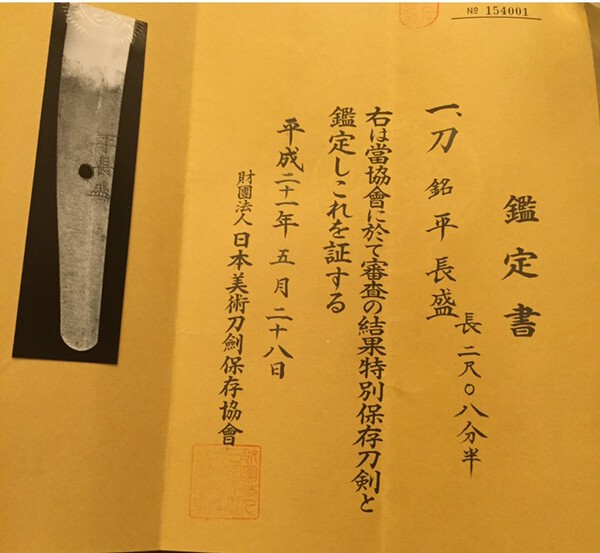 № 154001
鑑定書
一、刀 銘 平長盛
長二尺〇八分半
右は當協會に於て審査の結果特別保存刀剣と
鑑定しこれを証する
平成二十一年五月二十八日
財團法人 日本美術刀劍保存協會
平長盛